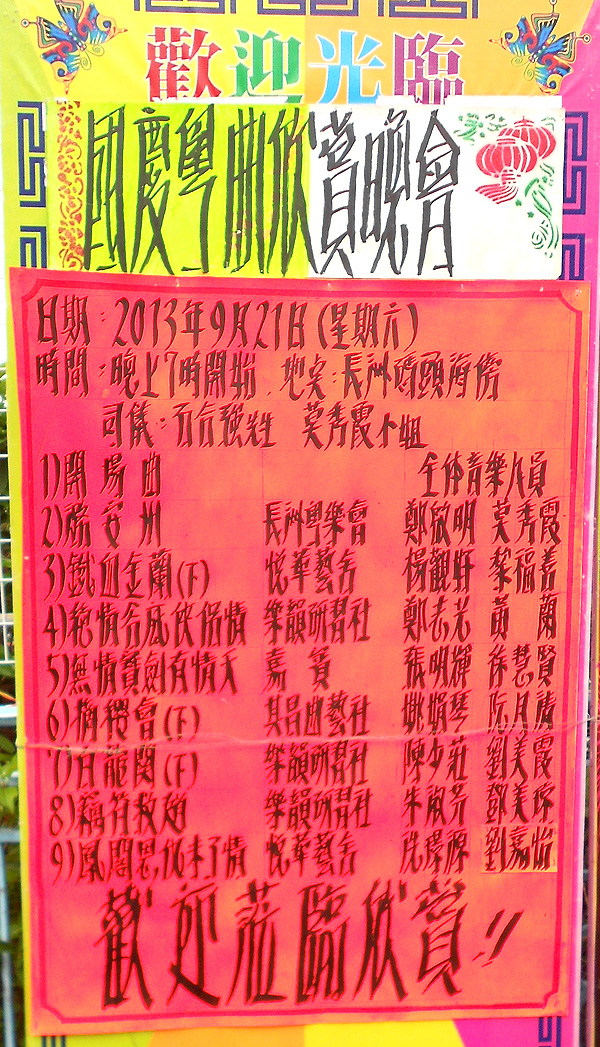 歡迎光臨
國慶粵曲欣賞晚會
日期:2013年9月21日(星期六)
時間:晚上7時開始 地点:長洲碼頭海傍
司儀:石合強先生 莫秀霞小姐
1)開場曲 全体音樂人員
2)醉安州 長洲粵樂會 鄭啟明 莫秀霞
3)鐵血金蘭(下) 悅華藝舍 楊觀好 黎福善
4)絕情谷底俠侶情 樂韻研習社 鄭志光 黃蘭
5)無情寶劍有情天 嘉賓 張明輝 徐慧賢
6)梅櫻會(下) 其昌曲藝社 姚娟琴 阮月濤
7)白龍關(下) 樂韻研習社 陳少莊 劉美霞
8)竊符救趙 樂韻研習社 朱淑芳 鄧美珍
9)鳳閣恩仇未了情 悅華藝舍 劉嘉怡
歡迎蒞臨欣賞!!